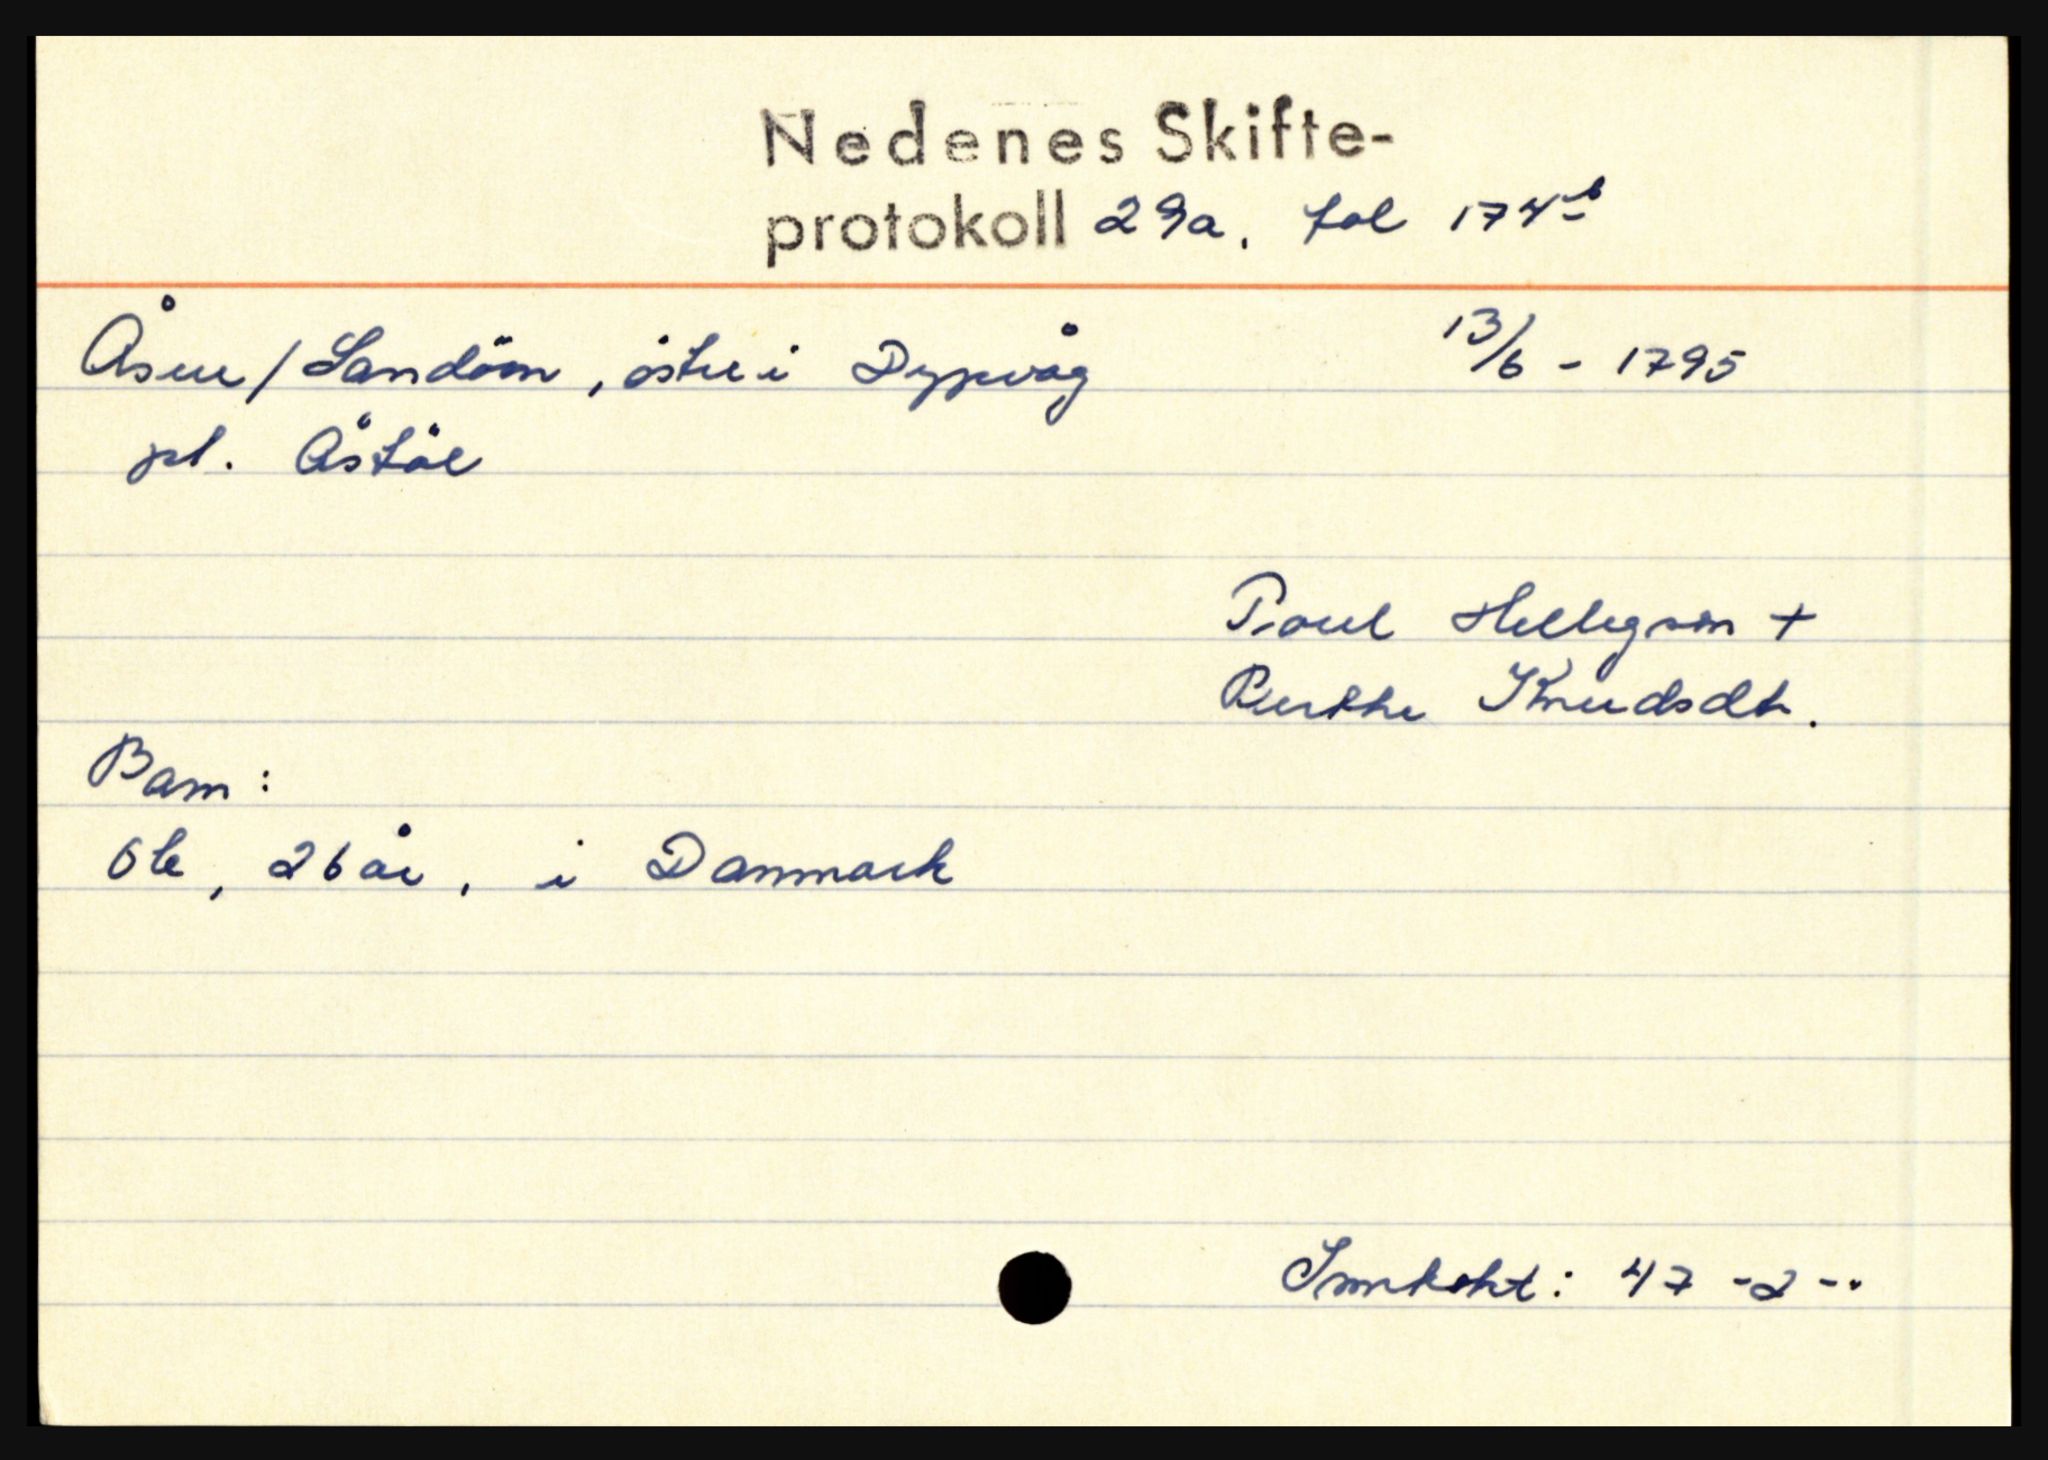 Nedenes Skifte-
protokoll 29a, fol 174b
Åsen / Sandöen, östre i Dypvåg 13/6 - 1795
pl. Östöl
Poul Hellegsön +
Knudsdtr.
Barn:
Ole, 26 år, i Danmark
47 - 2 - "